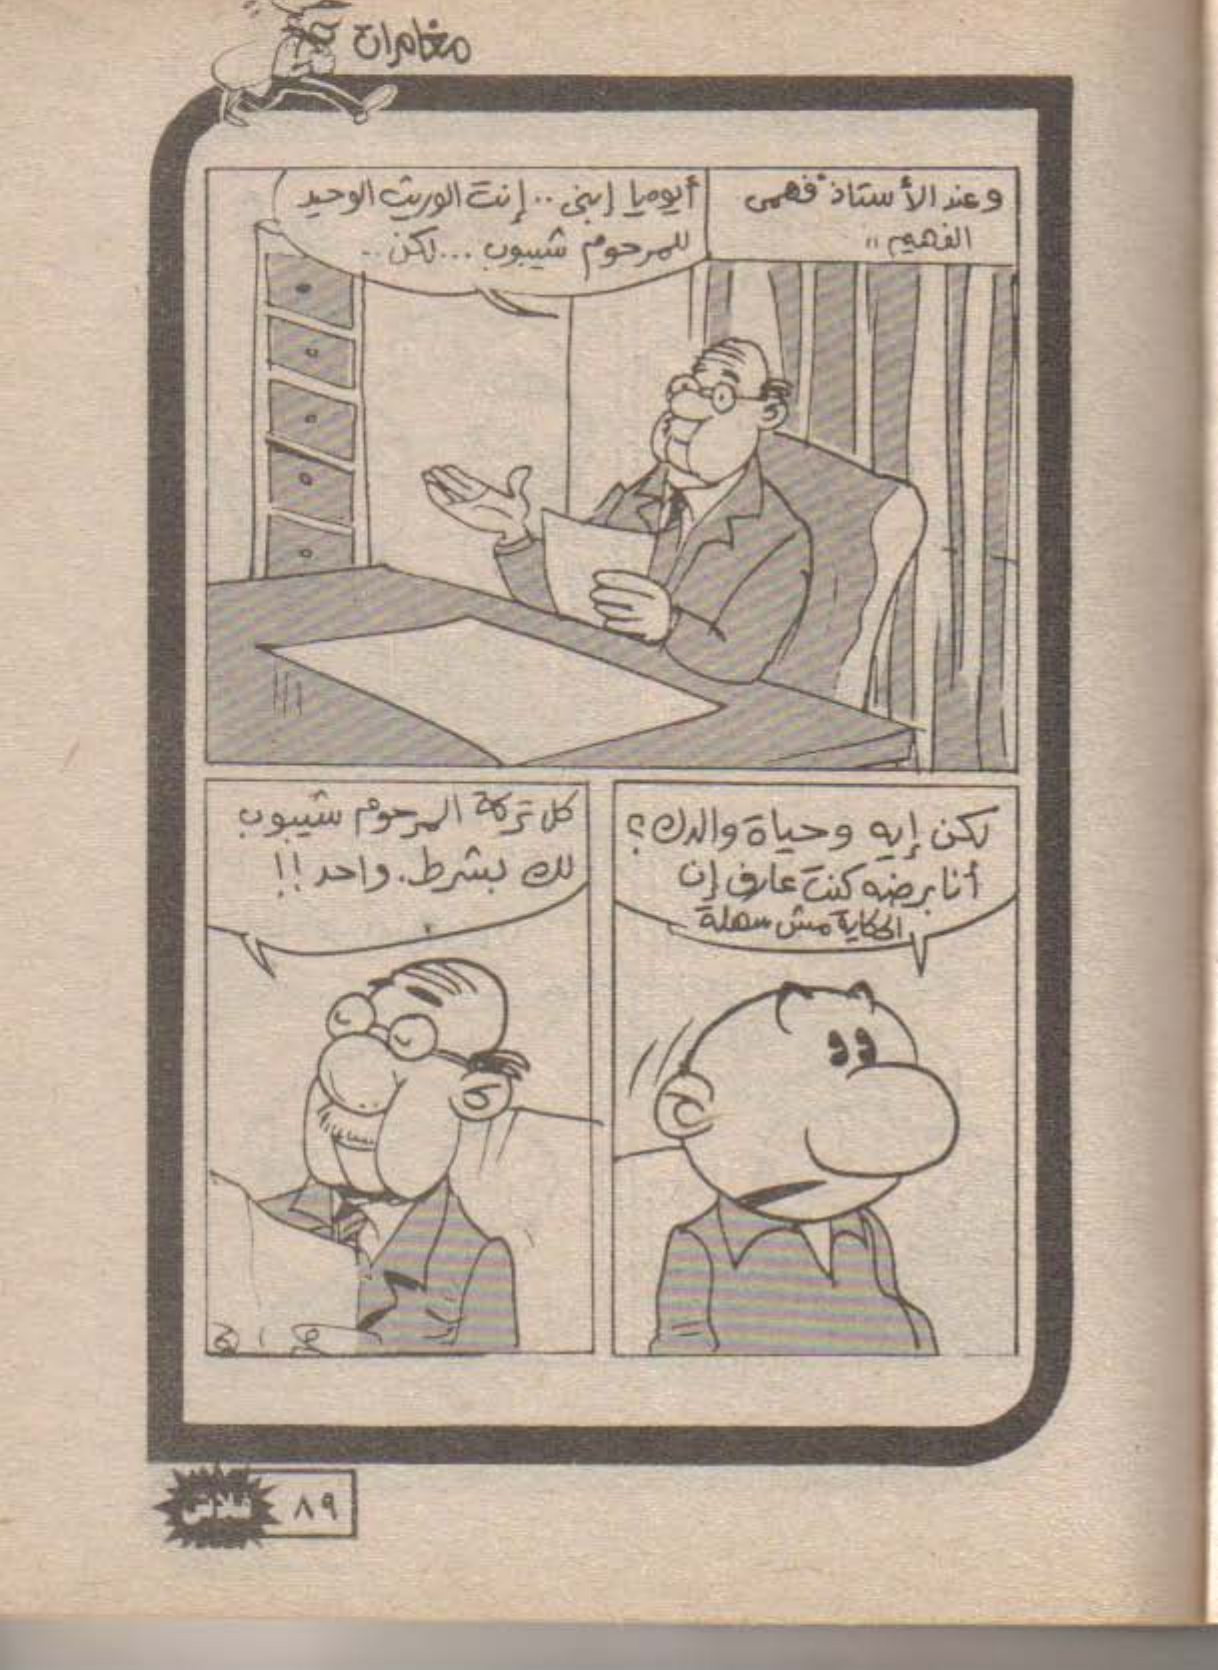 مغامرات
وعند الأستاذ "فهمى
الفهيم"
أيوه يا إبنى .. إنت الوريث الوحيد
للمرحوم شيبوب ... لكن ..
لكن إيه وحياة والدك ؟
أنا برضه كنت عارف إن
الحكاية مش سهلة
كل تركة المرحوم شيبوب
لك بشرط . واحد !!
٨٩
فلاش